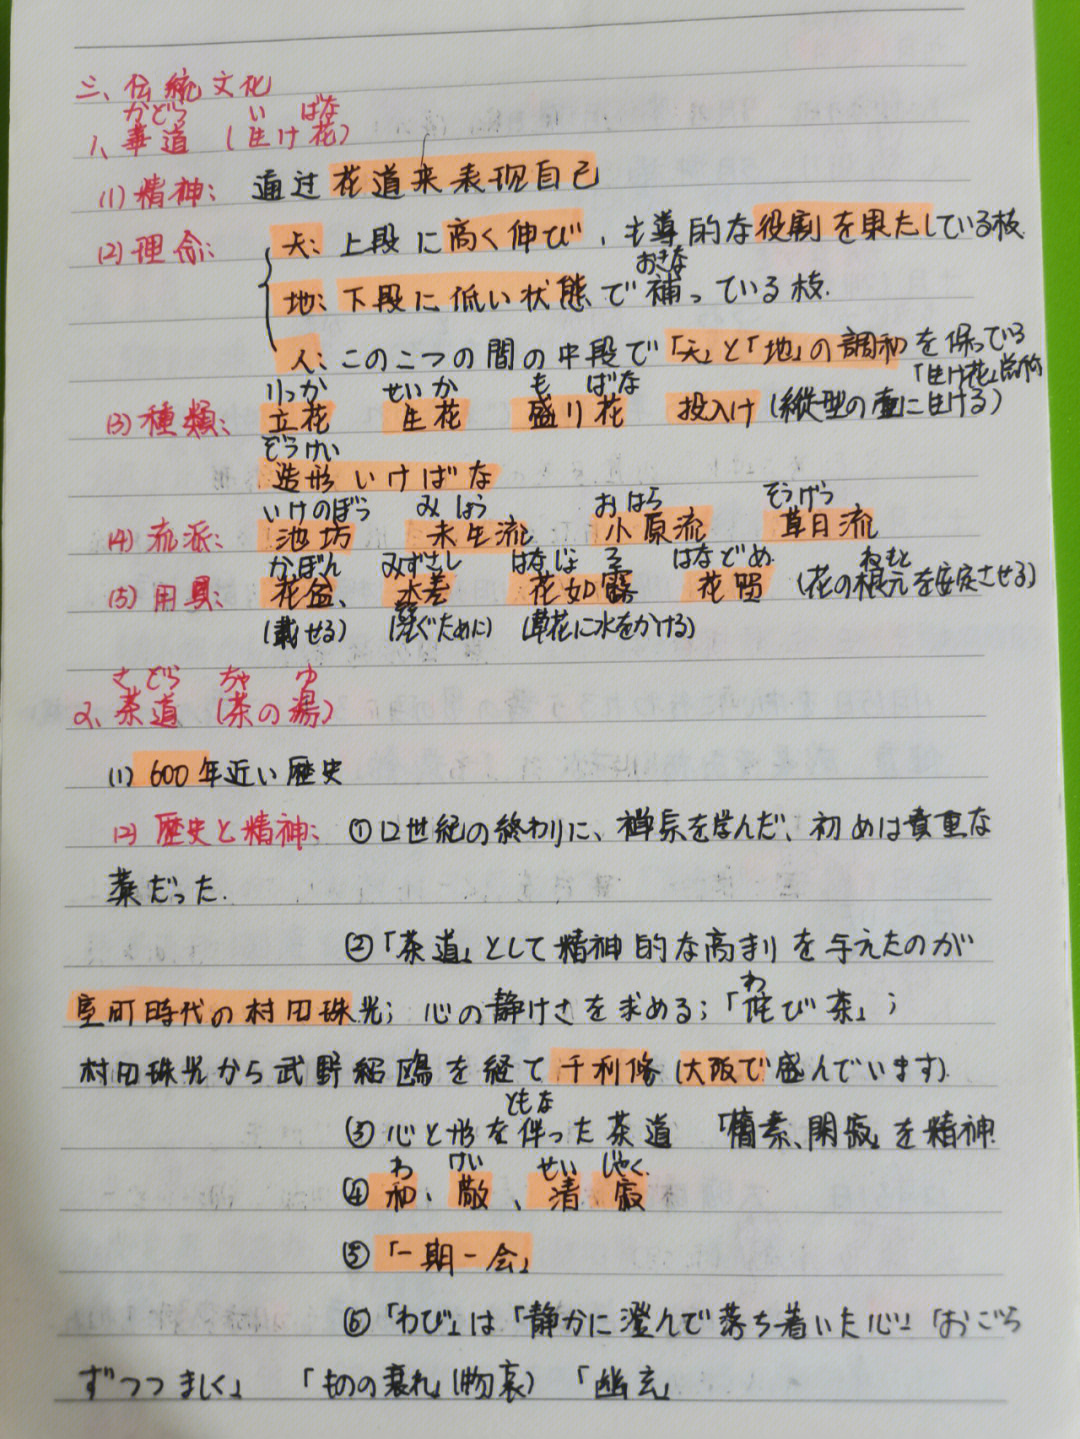 三、伝統文化
かどう い ばな
1、華道 (生け花)
(1)精神: 通过花道来表现自己
(2)理念: 天: 上段に高く伸び、主導的な役割を果たしている枝
おきな
地: 下段に低い状態で補っている枝.
人: この二つの間の中段で「天」と「地」の調和を保ってる
「生け花」总称
りっか せいか も ばな
(3)種類: 立花 生花 盛り花 投入け (縦型の壷に生ける)
ぞうけい
造形いけばな
いけのぼう みしょう おはら そうげつ
(4)流派: 池坊 未生流 小原流 草日流
かぼん みずさし はなじょろ はなどめ ねもと
(5)用具: 花盆、水差 花如露 花留 (花の根元を安定させる)
(載せる) (ぐために) (草花に水をかける)
さどう ちゃ ゆ
2、茶道 (茶の湯)
(1) 600年近い歴史
(2)歴史と精神: ①12世紀の終わりに、禅宗を学んだ、初めは貴重な
薬だった.
②「茶道」として精神的な高まりを与えたのが
わ
室町時代の村田珠光; 心の静けさを求める;「侘び茶」;
村田珠光から武野紹鴎を経て千利休 (大阪で盛んでいます).
ともな
③心と形を伴った茶道 「簡素、閑寂」を精神
わ けい せい じゃく
④和、敬、清 寂
⑤「一期一会」
⑥「わび」は「静かに澄んで落ち着いた心」「おごら
ずつつましく」 「ものの哀れ」(物哀) 「幽玄」